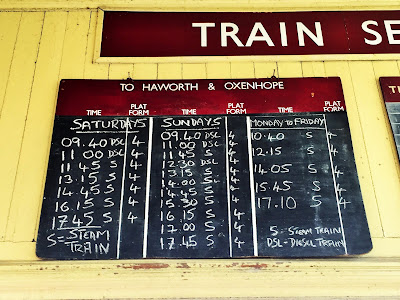 TRAIN SE
TO HAWORTH & OXENHOPE
TIME PLAT FORM
SATURDAYS
09.40 DSL 4
11.00 DSL 4
11.45 S 4
13.15 S 4
14.45 S 4
16.15 S 4
17.45 S 4
S = STEAM
TRAIN
TIME PLAT FORM
SUNDAYS
09.40 DSL 4
11.00 DSL 4
11.45 S 4
12.30 DSL 4
13.15 S 4
14.00 4
14.45 S 4
15.30 4
16.15 S 4
17.00 DSL 4
17.45 S 4
TIME PLAT FORM
MONDAY TO FRIDAY
10.40 S 4
12.15 S 4
14.05 S 4
15.45 S 4
17.10 S 4
S = STEAM TRAIN
DSL - DIESEL TRAIN